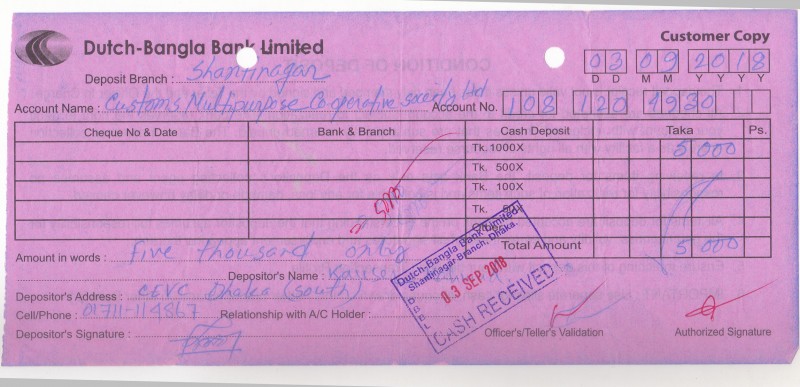 Dutch-Bangla Bank Limited
Customer Copy
03 09 2018
D D M M Y Y Y Y
Deposit Branch : Shantinagar
Account Name : Customs Multipurpose Co-operative society Ltd Account No. 108 120 4930
Cheque No & Date Bank & Branch Cash Deposit Taka Ps.
Tk. 1000X 5000
Tk. 500X
Tk. 100X
Tk.
Total Amount 5000
Amount in words : Five thousand only
Depositor's Name : Kauser
Depositor's Address : CEVC Dhaka (south)
Cell/Phone : 01711-114867 Relationship with A/C Holder :
Depositor's Signature :
Dutch-Bangla Bank Limited
Shantinagar Branch, Dhaka.
DBBL
03 SEP 2018
CASH RECEIVED
Officer's/Teller's Validation
Authorized Signature